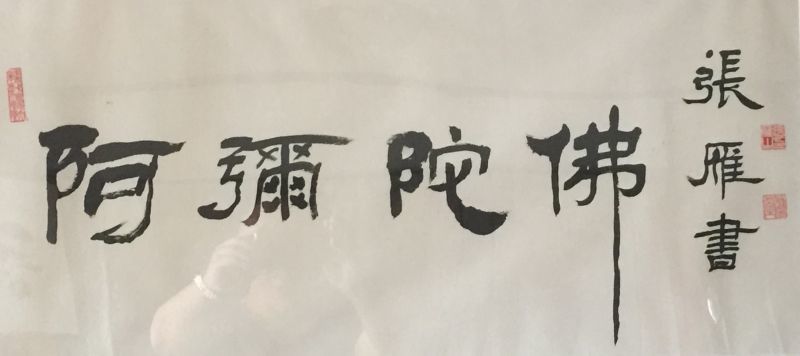 阿彌陀佛
張雁書